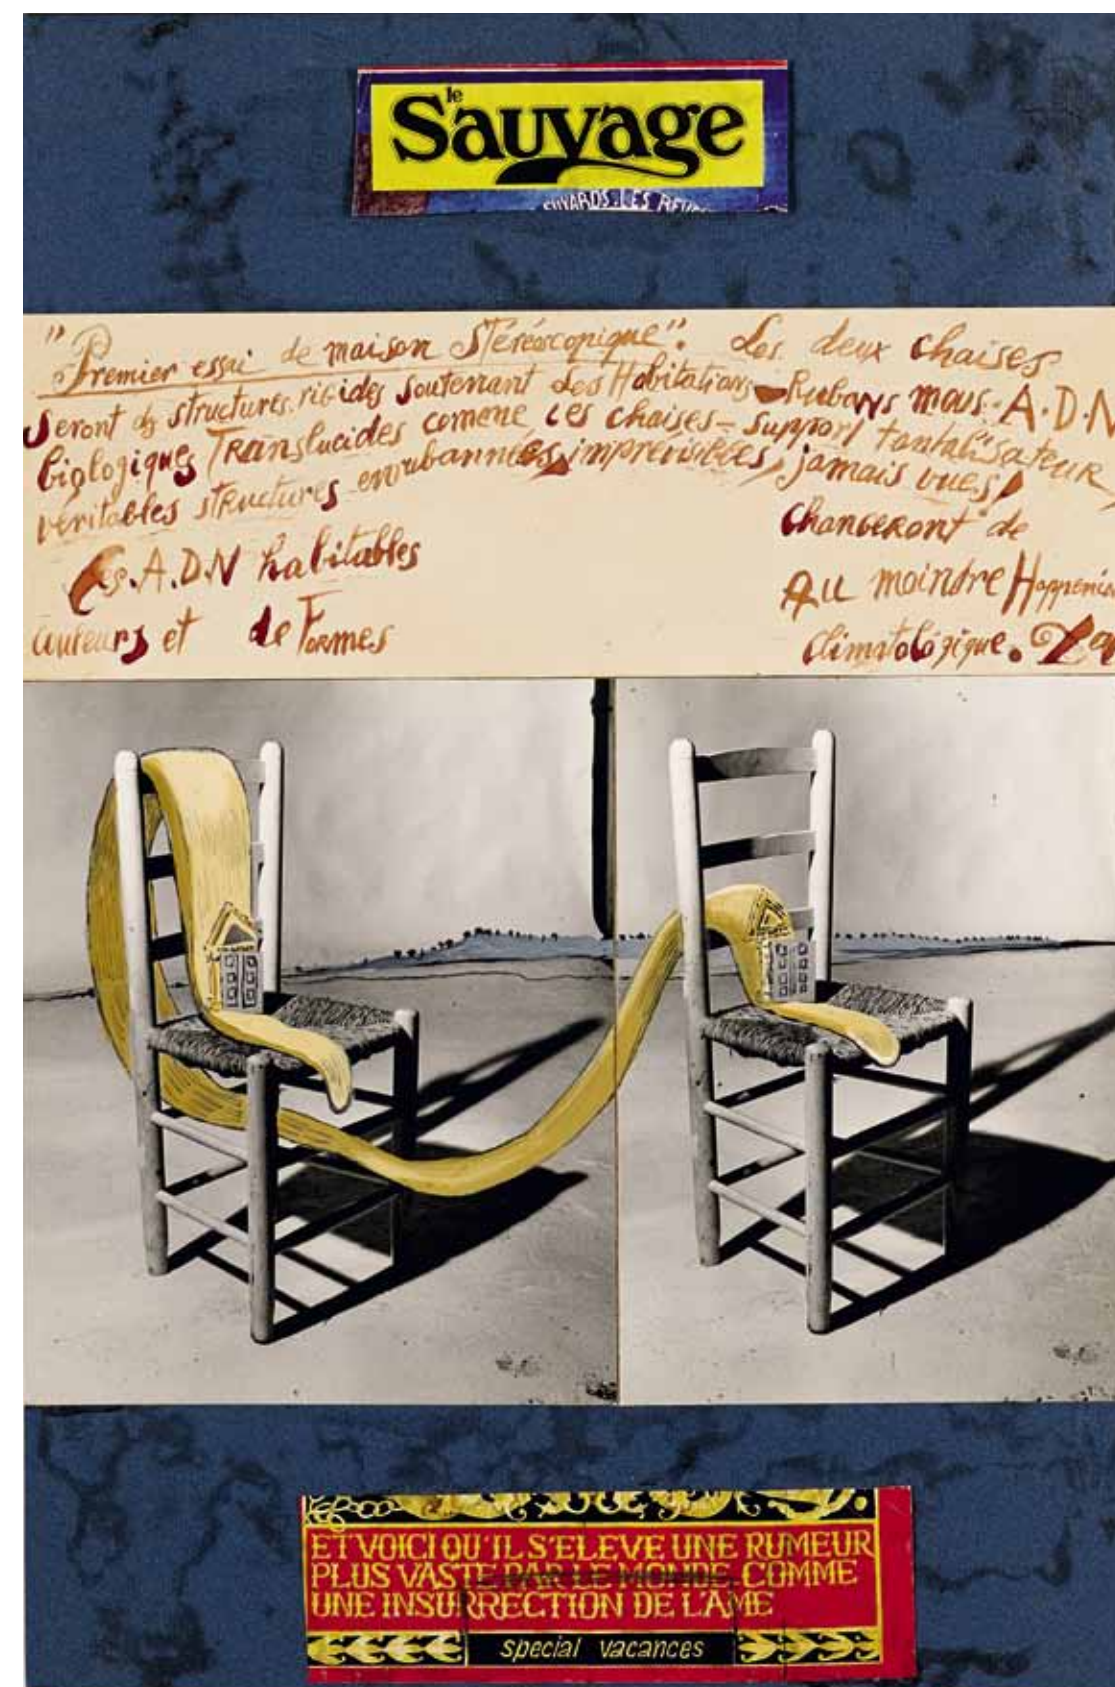 le
Sauvage
UYARDS. LES
"Premier essai de maison Stéréoscopique". Les deux chaises
Seront des structures rigides soutenant des Habitations Rubans mous. A.D.N
biologiques Translucides comene ces chaises - Support tantalisateur,
véritables structures enrubannées, imprévisibles, jamais vues!
Ces. A.D.N habitables changeront de
couleurs et de Formes Au moindre Happenin
climatologique.
ET VOICI QU'IL S'ELEVE UNE RUMEUR
PLUS VASTE PAR LE MONDE, COMME
UNE INSURRECTION DE L'AME
special vacances